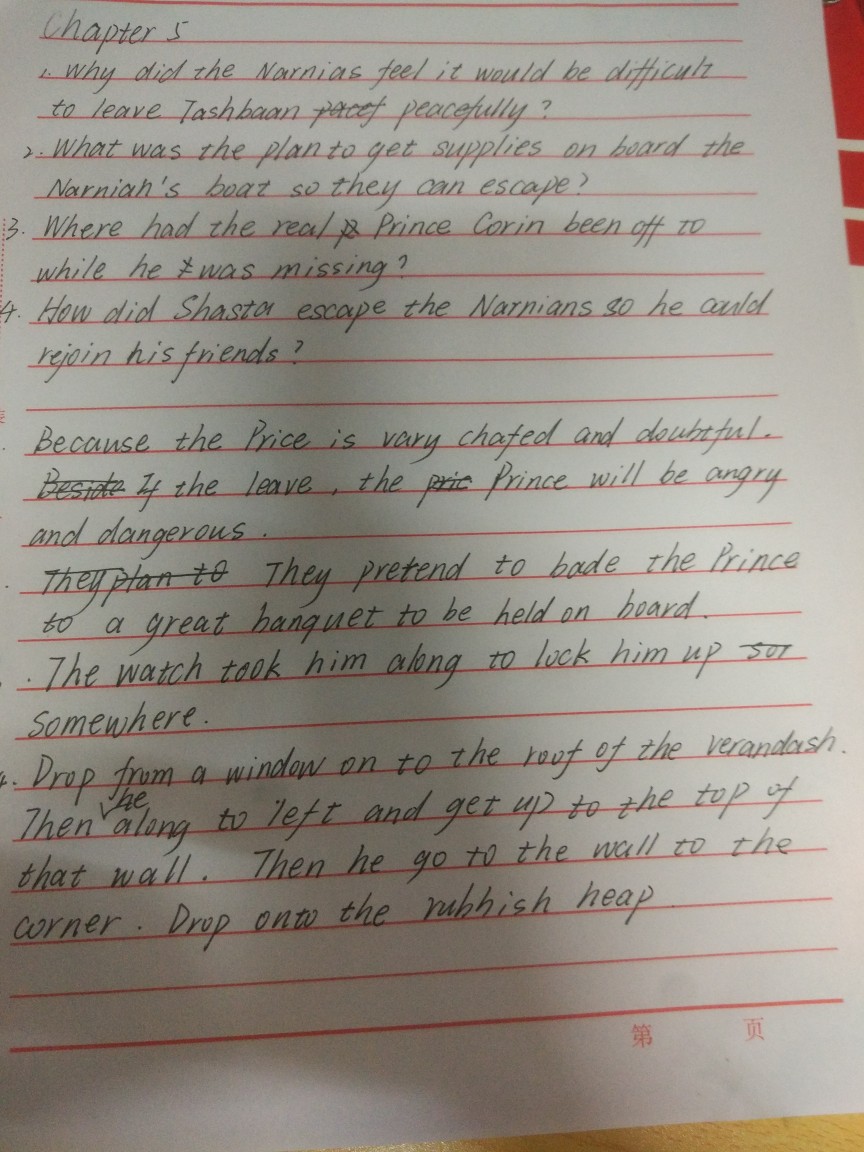 Chapter 5
1. Why did the Narnias feel it would be difficult
to leave Tashbaan pacef peacefully?
2. What was the plan to get supplies on board the
Narnian's boat so they can escape?
3. Where had the real p Prince Corin been off to
while he t was missing?
4. How did Shasta escape the Narnians so he could
rejoin his friends?
Because the Price is vary chafed and doubtful.
Beside If the leave, the pric Prince will be angry
and dangerous.
They plan to They pretend to bade the Prince
to a great banquet to be held on board.
. The watch took him along to lock him up sor
somewhere.
4. Drop from a window on to the roof of the verandash.
Then he along to left and get up to the top of
that wall. Then he go to the wall to the
corner. Drop onto the rubbish heap.
第 页